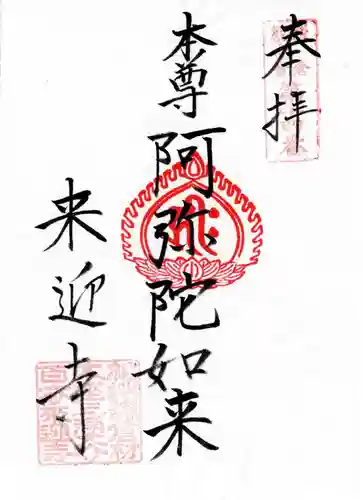 奉拝
本尊阿弥陀如来
来迎寺